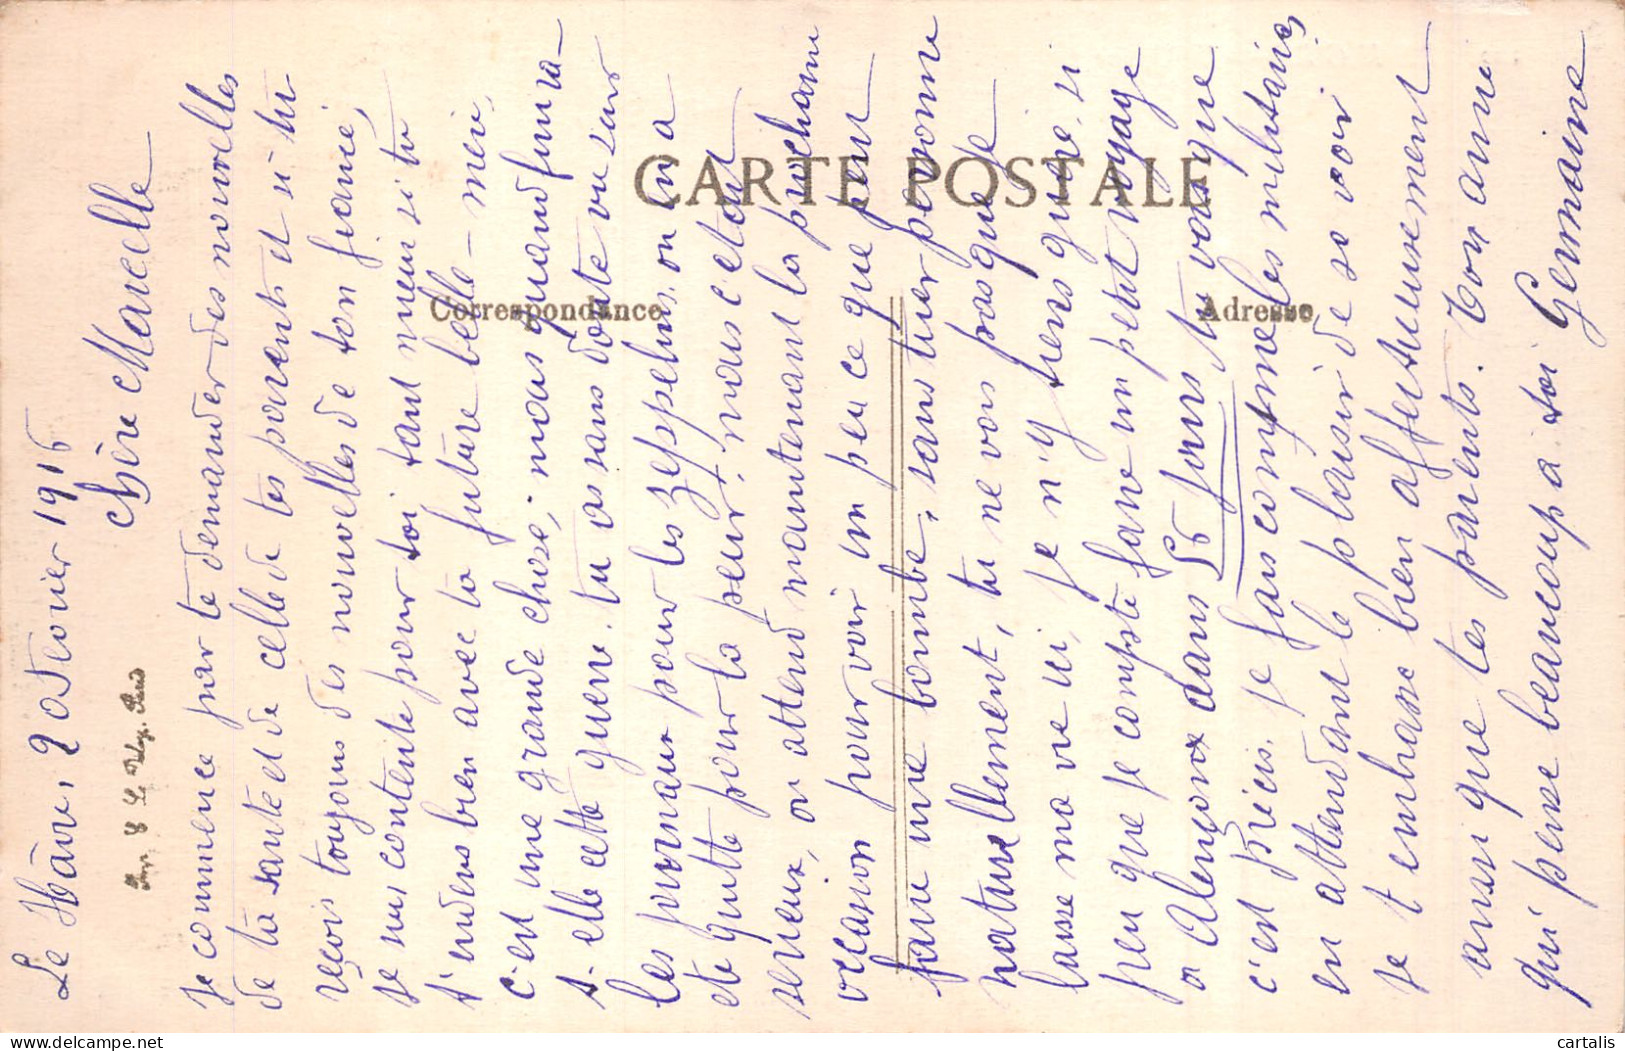 Le Hâvre, 2 Fevrier 1916
Chère Marcelle
Je commence par te demander des nouvelles
de ta santé et de celle de tes parents et si tu
reçois toujours des nouvelles de ton fiancé,
je suis contente pour toi tant mieux si tu
t'endens bien avec ta future belle-mère,
c'est une grande chose, nous quand finira-
t-elle cette guerre. tu as sans doute vu sur
les journaux pour les zeppelins, on en a
été quitte pour la peur, mais c'était
serieux, on attend maintenant la prochaine
occasion pour voir un peu ce que peut
faire une bombe, sans tuer personne
naturellement, tu ne vois pas que je
laisse ma vie ici, je n'y tiens guère, si
peu que je compte faire un petit voyage
a Alençon dans 56 jours, tu vois que
c'est précis. je fais comme les militaires
en attendant le plaisir de se voir
je t'embrasse bien affectueusement
ainsi que tes parents. Ton amie
qui pense beaucoup a toi
Germaine
CARTE POSTALE
Correspondance
Adresse
cartalis
delcampe.net